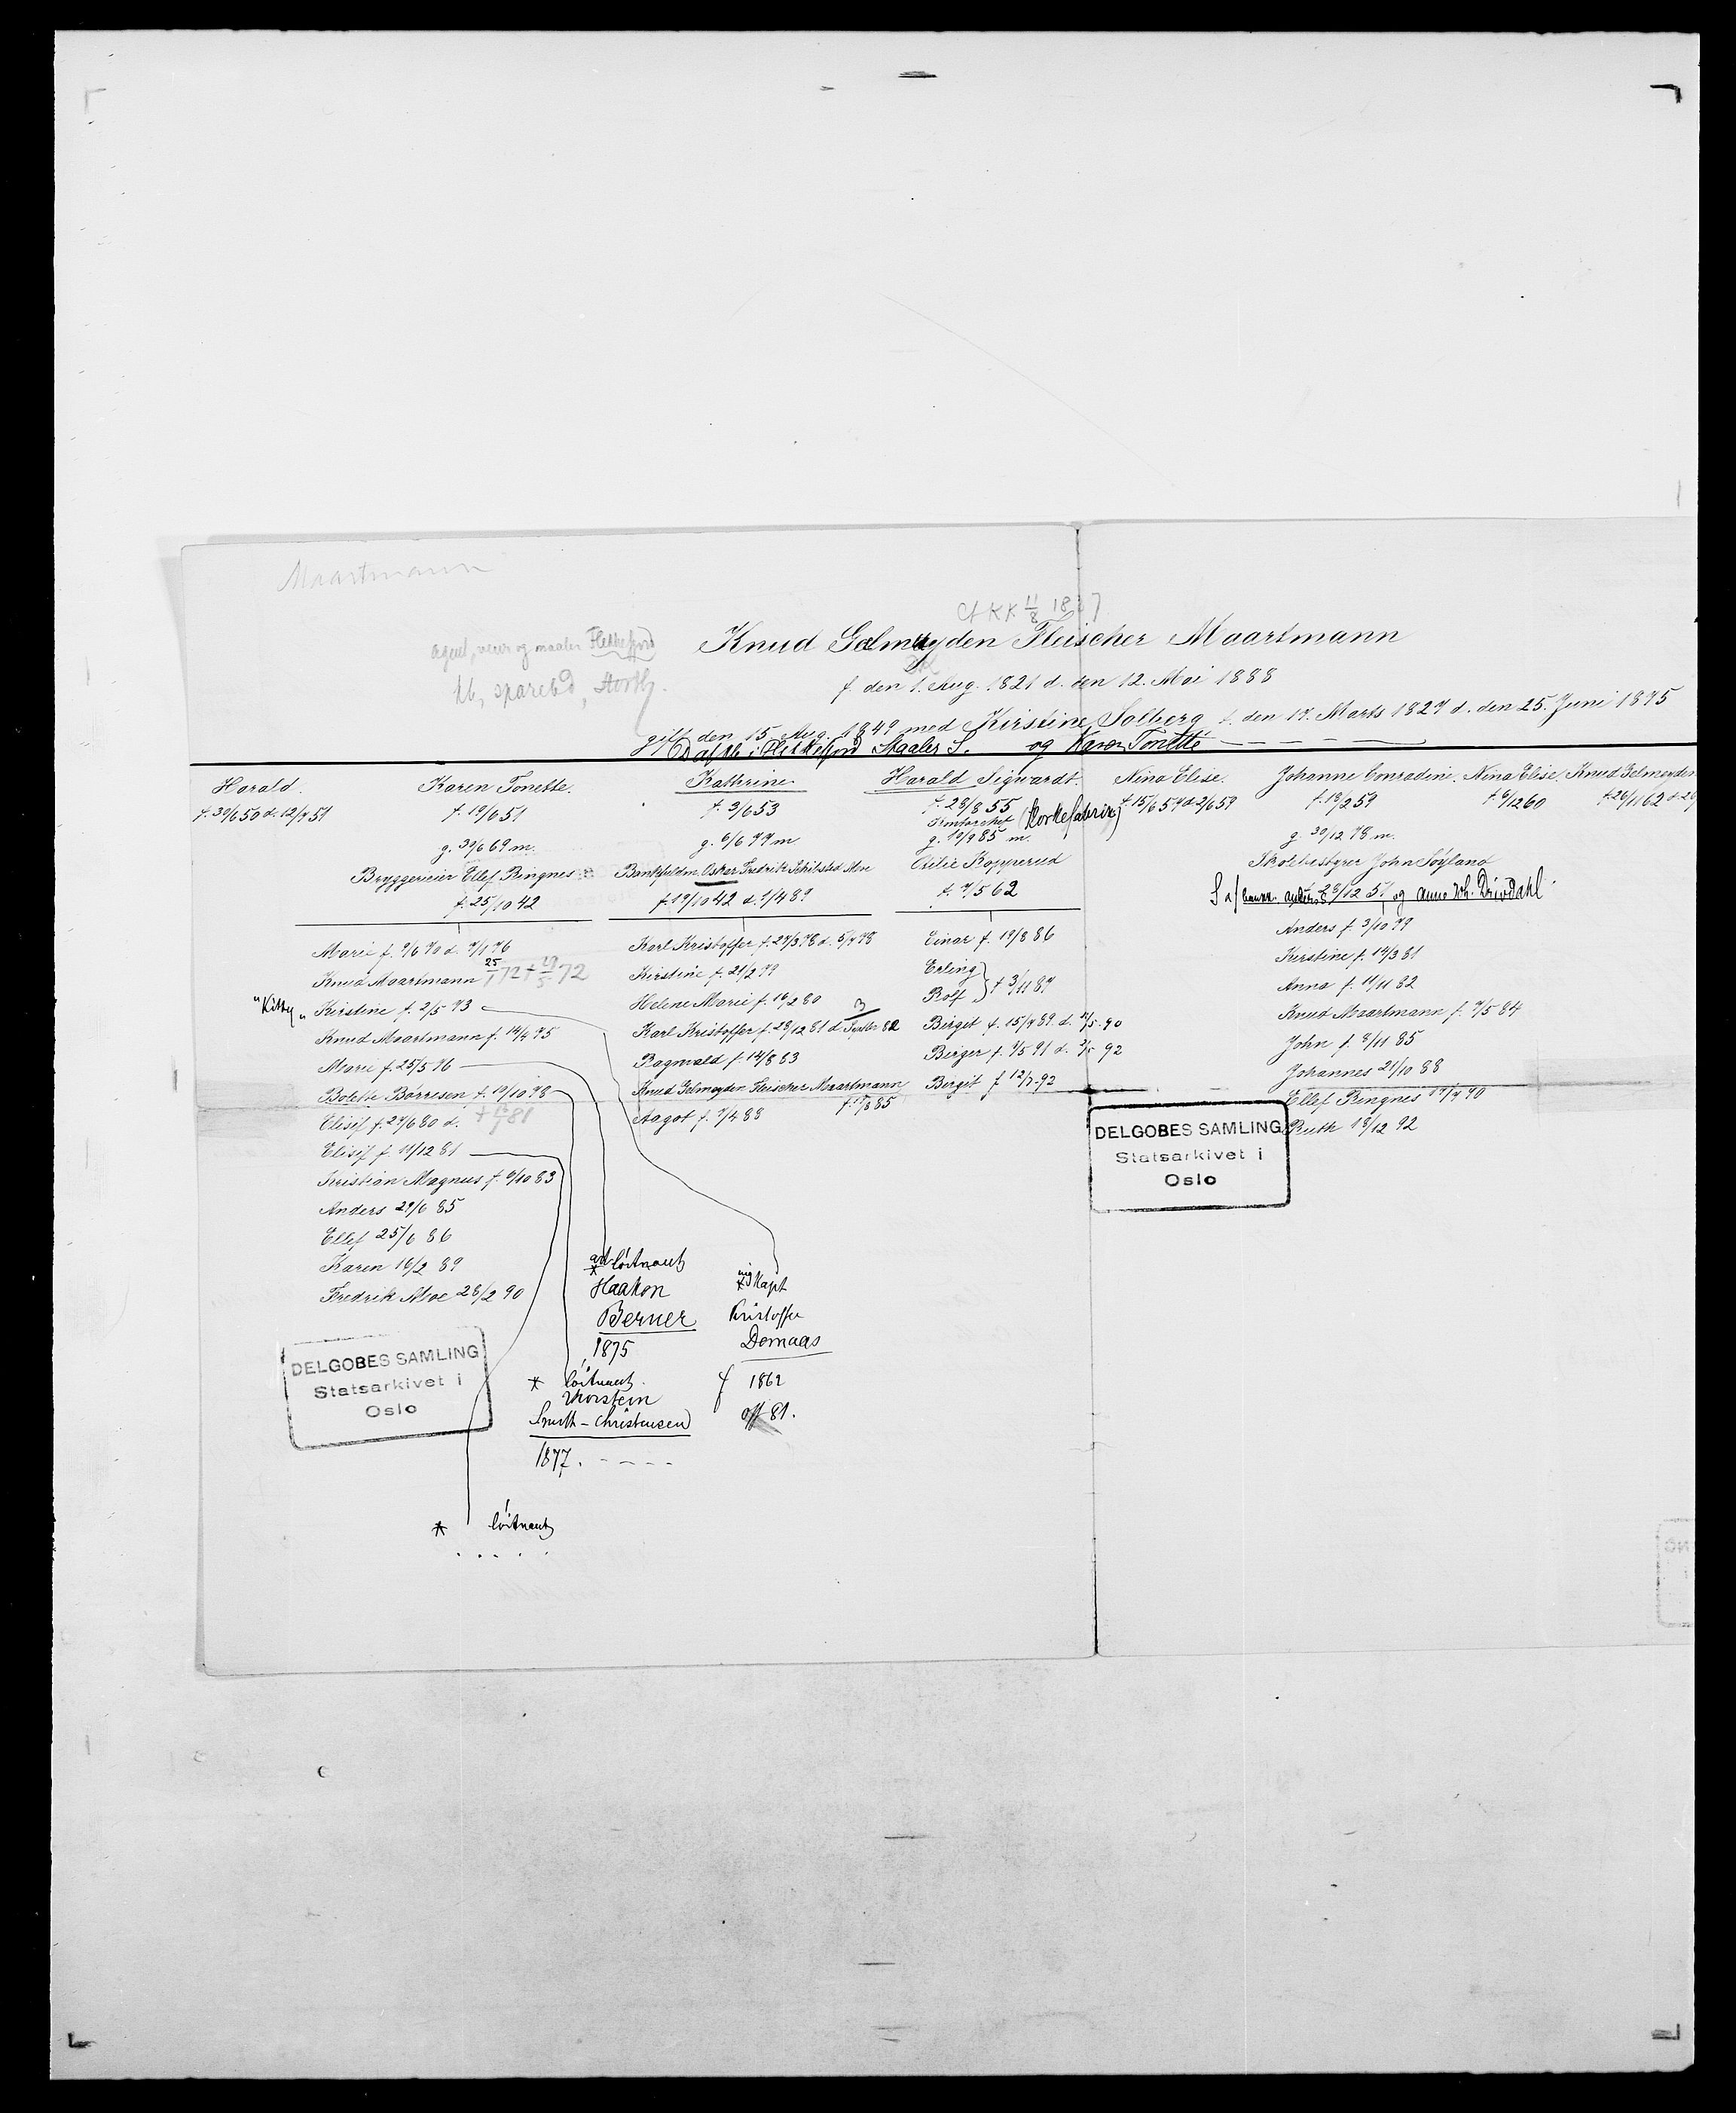 Maartmann
Cf KK 11/8 18
Knud Gelmuyden Fleischer Maartmann
agent, veier og maaler Flekkefjord
kb, spareb, Storth.
f. den 1. Aug. 1821 d. den 12. Mai 1888
gift den 15. Aug. 1849 med Kirstine Solberg f. den 17. Marts 1827 d. den 25. Juni 1875
D af kb. i Flekkefjord Staaler S. og Karen Tonette
Harald.
f. 30/6 50 d. 12/7 51
Karen Tonette.
f. 19/6 51
g. 30/6 69 m.
Bryggerieier Ellef Ringnes
f. 25/10 42
Marie f. 9/6 70 d. 7/1 76
Knud Maartmann 25/1 72 + 19/5 72
"Kitty" Kirstine f. 2/5 73
Knud Maartmann f. 14/4 75
Marie f. 25/5 76
Bolette Børresen f. 19/10 78
Elisif f. 27/6 80 d. + 81
Elisif f. 11/12 81
Kristian Magnus f. 6/10 83
Anders 29/6 85
Ellef 25/6 86
Karen 16/2 89
Fredrik Moe 28/2 90
Kathrine
f. 3/6 53
g. 6/6 77 m
Bankfuldm. Oskar Fredrik Schibsted Moe
f. 19/10 42 d. 1/4 89
Karl Kristoffer f. 27/3 78 d. 5/7 78
Kirstine f. 21/2 79
Helene Marie f. 16/2 80
Karl Kristoffer f. 28/12 81 d. Septbr 82
Ragnvald f. 14/8 83
Knud Gelmeyden Fleischer Maartmann
f. 17/8 85
Aagot f. 7/4 88
Harald Sigwardt
f. 28/8 55
(Korkefabrik)
g. 10/9 85 m.
Otilie Kopperud
f. 7/5 62
Einar f. 19/8 86
Erling
Rolf } f 3/11 87
Birgit f. 15/7 89. d. 21/5. 90
Birger f. 4/5 91 d. 2/5 92
Birgit f 12/7. 92
Nina Elise.
f. 15/6 57 d. 2/6 59
Johanne Conradine.
f. 18/2 59
g. 30/12 78 m.
Skolebestyrer John Søyland
S af Anders 28/12 57 og Anne Drivdahl
Anders f. 3/10 79
Kirstine f. 19/3 81
Anna f. 11/11 82
Knud Maartmann f. 7/5 84
John f. 8/11 85
Johannes 21/10 88
Ellef Ringnes 17/7 90
Ruth 18/12 92
Nina Elise.
f. 6/12 60
Knud Gelmeyden
f. 26/11 62 d. 26
art løitnant
* Haakon
Berner
1875
ing
* Kapt
Kristoffer
Domaas
f 1862
off 81.
* løitnant
Thorstein
Smith-Christensen
1877.
* løitnant
DELGOBES SAMLING
Statsarkivet i
Oslo
DELGOBES SAMLING
Statsarkivet i
Oslo